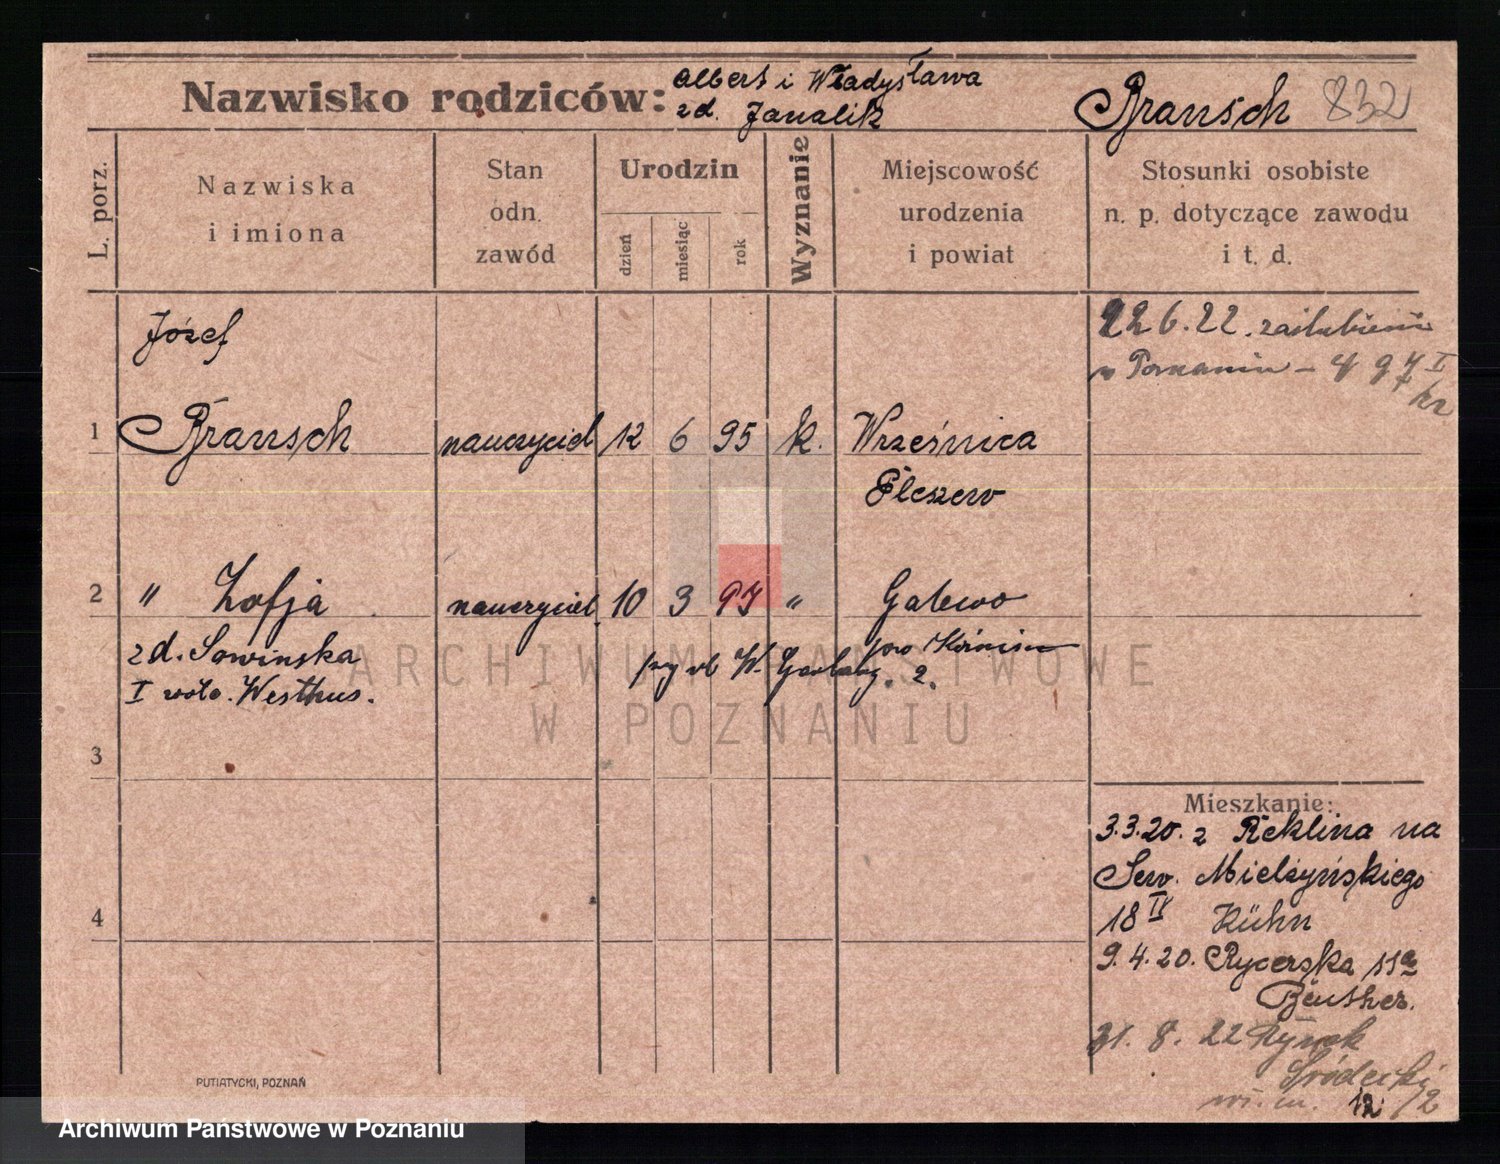 Nazwisko rodziców: Albert i Władysława
zd. Janalik
Bransch 832
L. porz.
Nazwiska
i imiona
Stan
odn.
zawód
Urodzin
dzień
miesiąc
rok
Wyznanie
Miejscowość
urodzenia
i powiat
Stosunki osobiste
n. p. dotyczące zawodu
i t. d.
22 6. 22. zaślubieni
w Poznaniu
Józef
1 Bransch nauczyciel 12 6 95 k. Wrześnica
Pleszew
2 " Zofja nauczyciel 10 3 97 " Galewo
zd. Sowinska
I voto. Westhus.
2.
ARCHIWUM PAŃSTWOWE
W POZNANIU
3
4
Mieszkanie:
3.3.20. z Reklina na
Sew. Mielżyńskiego
18 II Kühn
9.4.20. Rycerska 11a
Beuther.
31. 8. 22 Rynek
Śródecki
12
PUTIATYCKI, POZNAŃ
Archiwum Państwowe w Poznaniu